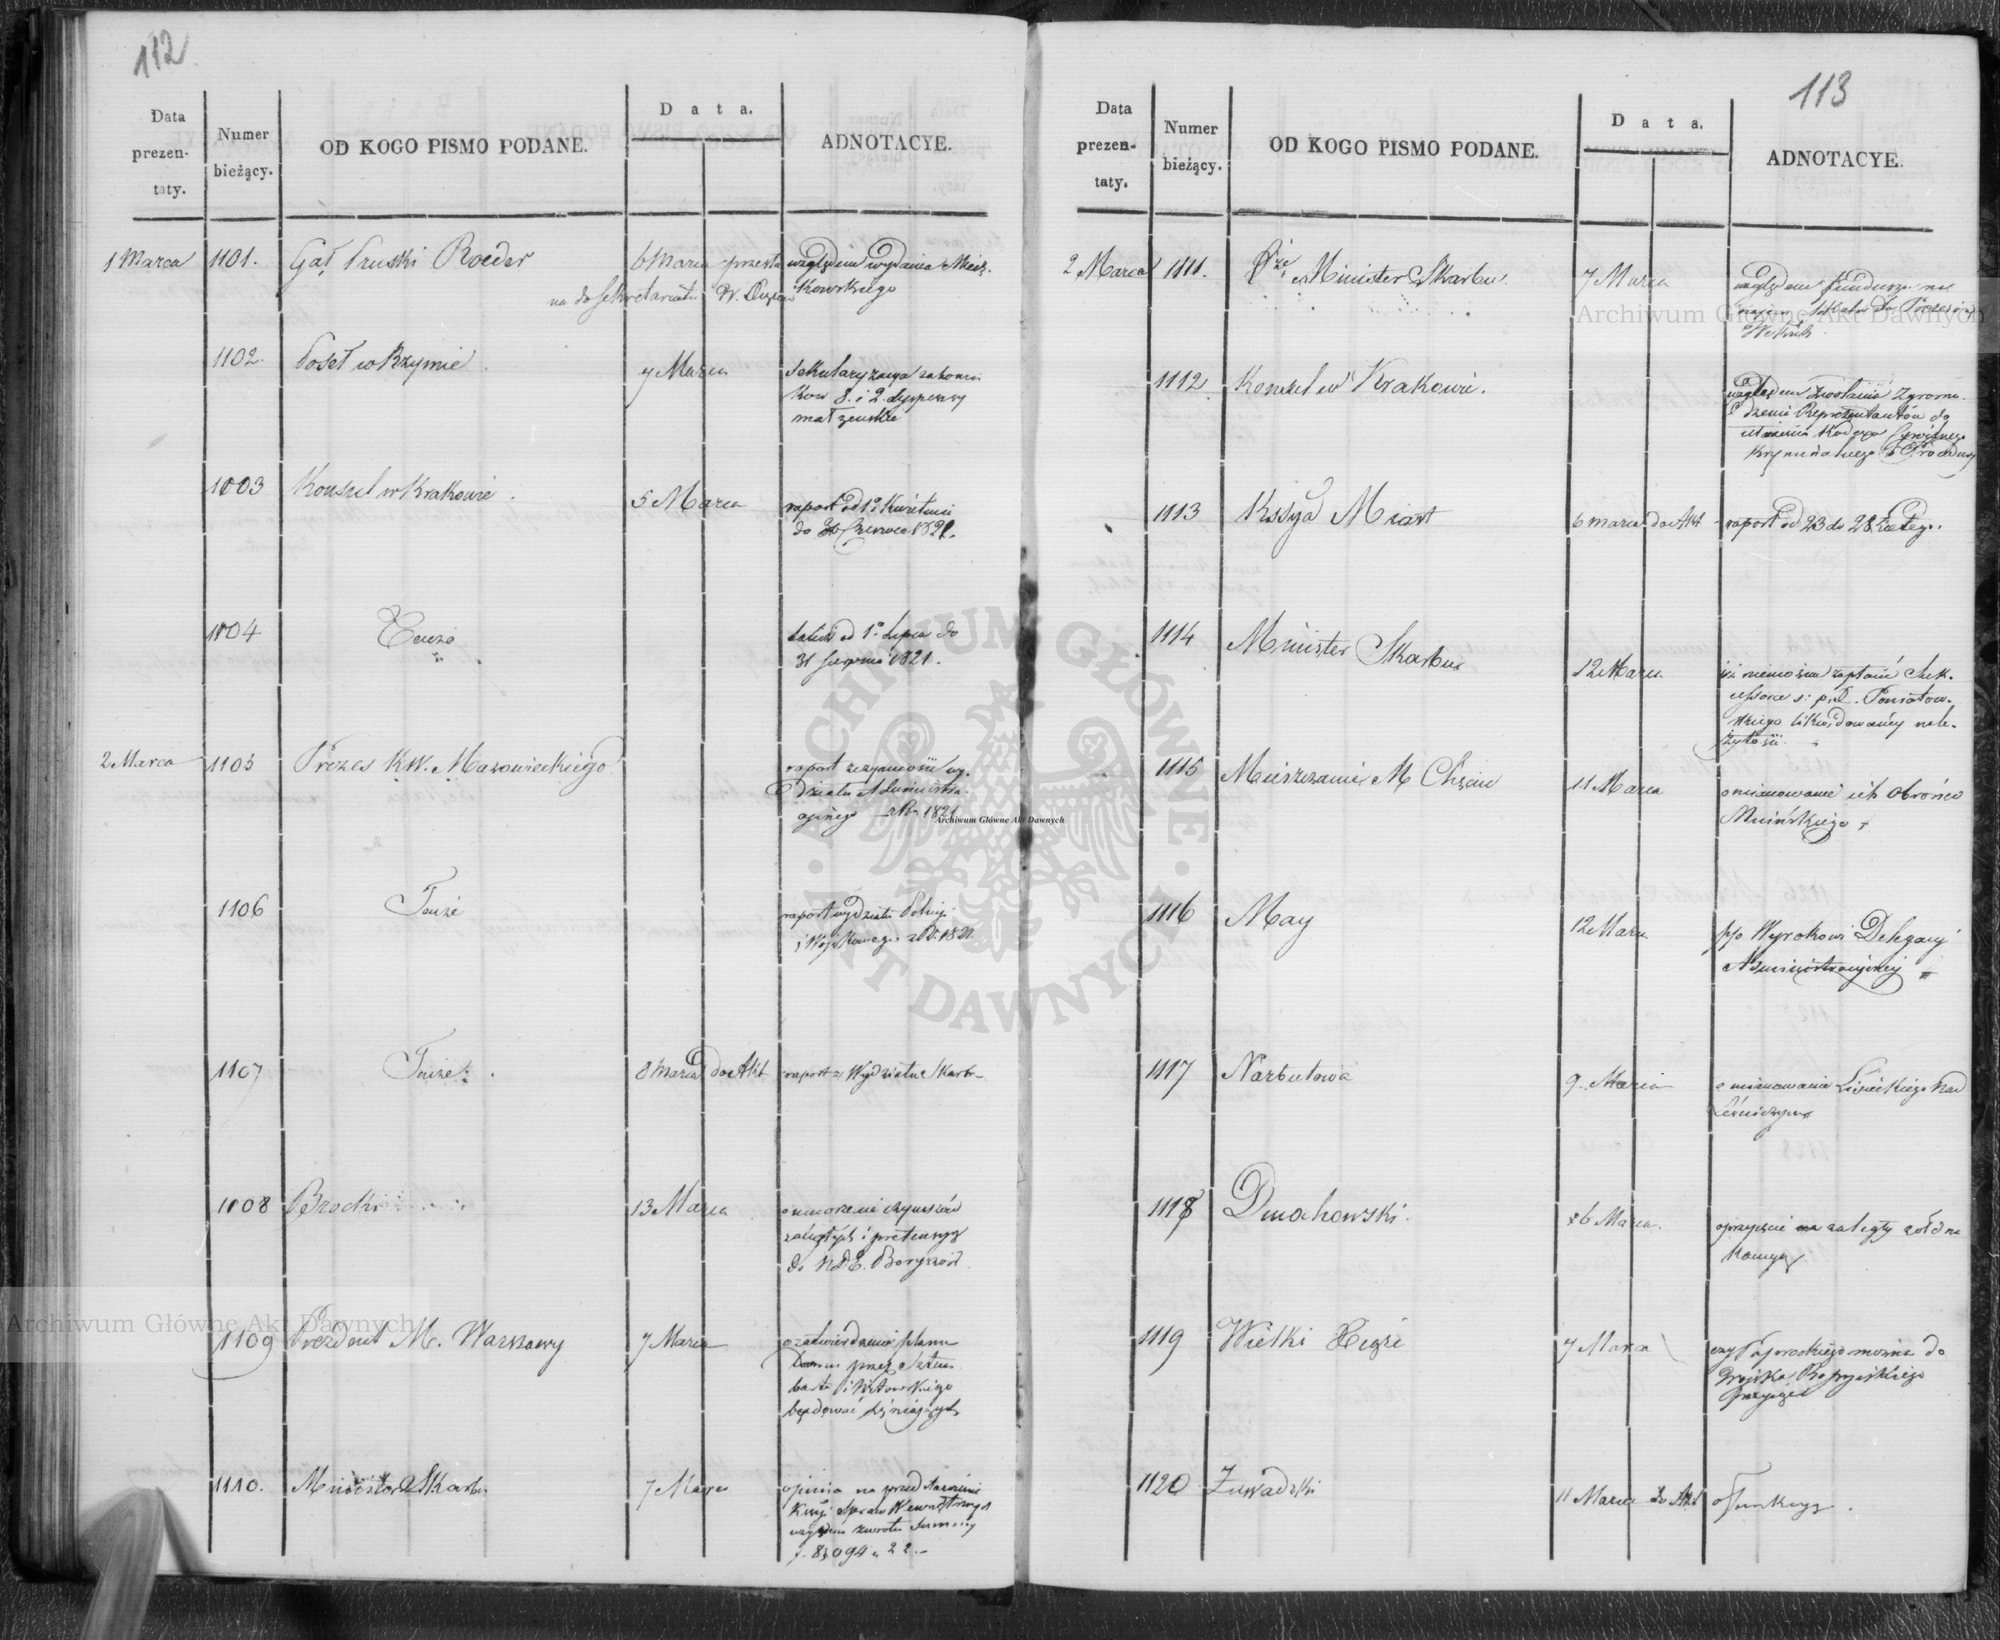 112
Data prezen- taty.
Numer bieżący.
OD KOGO PISMO PODANE.
Data.
ADNOTACYE.
1 Marca 1101. Gał Pruski Roeder 6 Marca względem wydania Miecz-
na do Sekretariatu kowskiego
1102. Poseł w Rzymie 7 Marca Sekularyzacya zakonni
ków 8. i 2. dyspensy
małżeńskie
1103 Konsul w Krakowie. 5 Marca raport od 1o Kwietnia
do Czerwca 1821.
1104 Tenże od 1o Lipca do
31 Sierpnia 1821.
2 Marca 1105 Prezes K.W. Mazowieckiego raport z czynności wy-
działu Administra-
cyjnego 1821
1106 Tenże raport wydziału Policyi
i Wojskowego 1821.
1107 Tenże 8 Marca do Akt raport z Wydziału Skarbu
1108 Brocki 13 Marca o umorzenie czynszów
zaległych i pretensyi
do
1109 Prezydent M. Warszawy 7 Marca o zatwierdzenie planu
Domu przez
i Witowskiego
budować
1110. Minister Skarbu 7 Marca opinia na przedstawienie
Kmsyi Spraw Wewnętrznych
względem zwrotu Summy
f. 8,094 " 22.-
113
Data prezen- taty.
Numer bieżący.
OD KOGO PISMO PODANE.
Data.
ADNOTACYE.
2 Marca 1111. Minister Skarbu 7 Marca względem funduszu na
najem lokalu dla Prezesa
1112 Konsul w Krakowie. względem zwołania Zgroma-
dzenia Reprezentantów do
Kodexu Cywilnego
Kryminalnego i Procedury
1113 Kssya Miast 6 Marca do Akt raport od 23 do 28 Lutego.
1114 Minister Skarbu 12 Marca iż niemożna zapłacić Suk-
cessorom ś: p. X. Poniatow-
skiego likwidowanéy nale-
żytości
1115 Mieszczanie M Chęcin 11 Marca o mianowanie ich obrońcą
1116 May 12 Marca p/o Wyrokowi Delegacyi
Administracyjnej
1117 Narbutowa 9. Marca o mianowanie Lisieckiego Nad
Leśniczym
1118 Dmochowski. 6 Marca. zaległy żołd na
1119 Wielki Xiążę 7 Marca czy Paprockiego można do
Wojska Rossyjskiego
przyjąć
1120 Zawadzki 11 Marca do Akt o funkcyą.
Archiwum Główne Akt Dawnych
Archiwum Główne Akt Dawnych
Archiwum Główne Akt Dawnych
ARCHIWUM GŁÓWNE AKT DAWNYCH